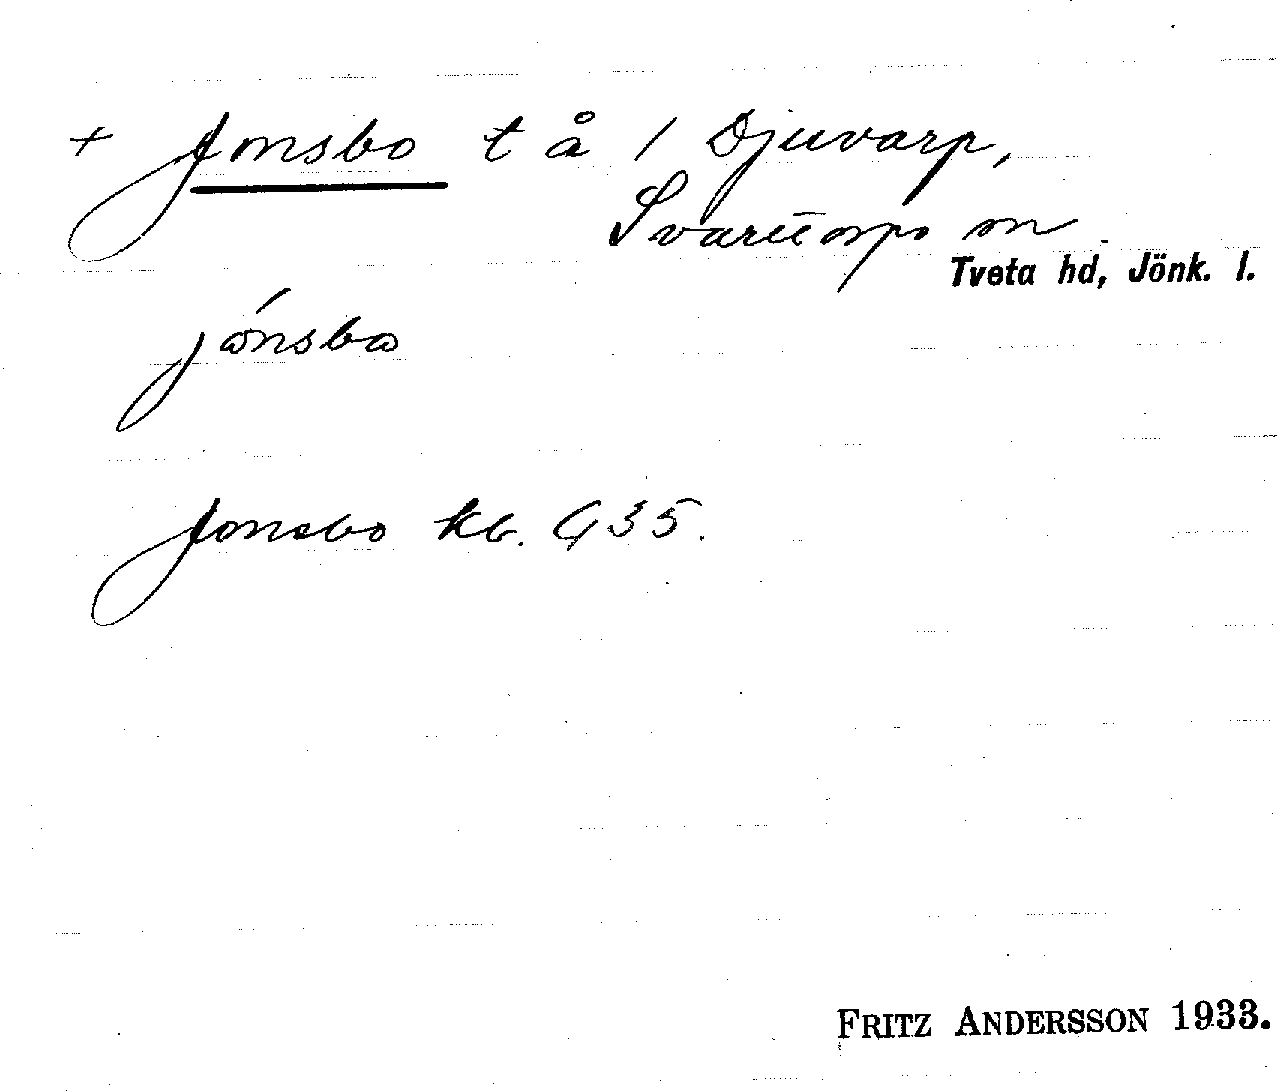 + Jonsbo t å / Djuvarp,
Svarttorps sn.
Tveta hd, Jönk. l.
jónsbo
Jonsbo kb. G 35.
FRITZ ANDERSSON 1933.